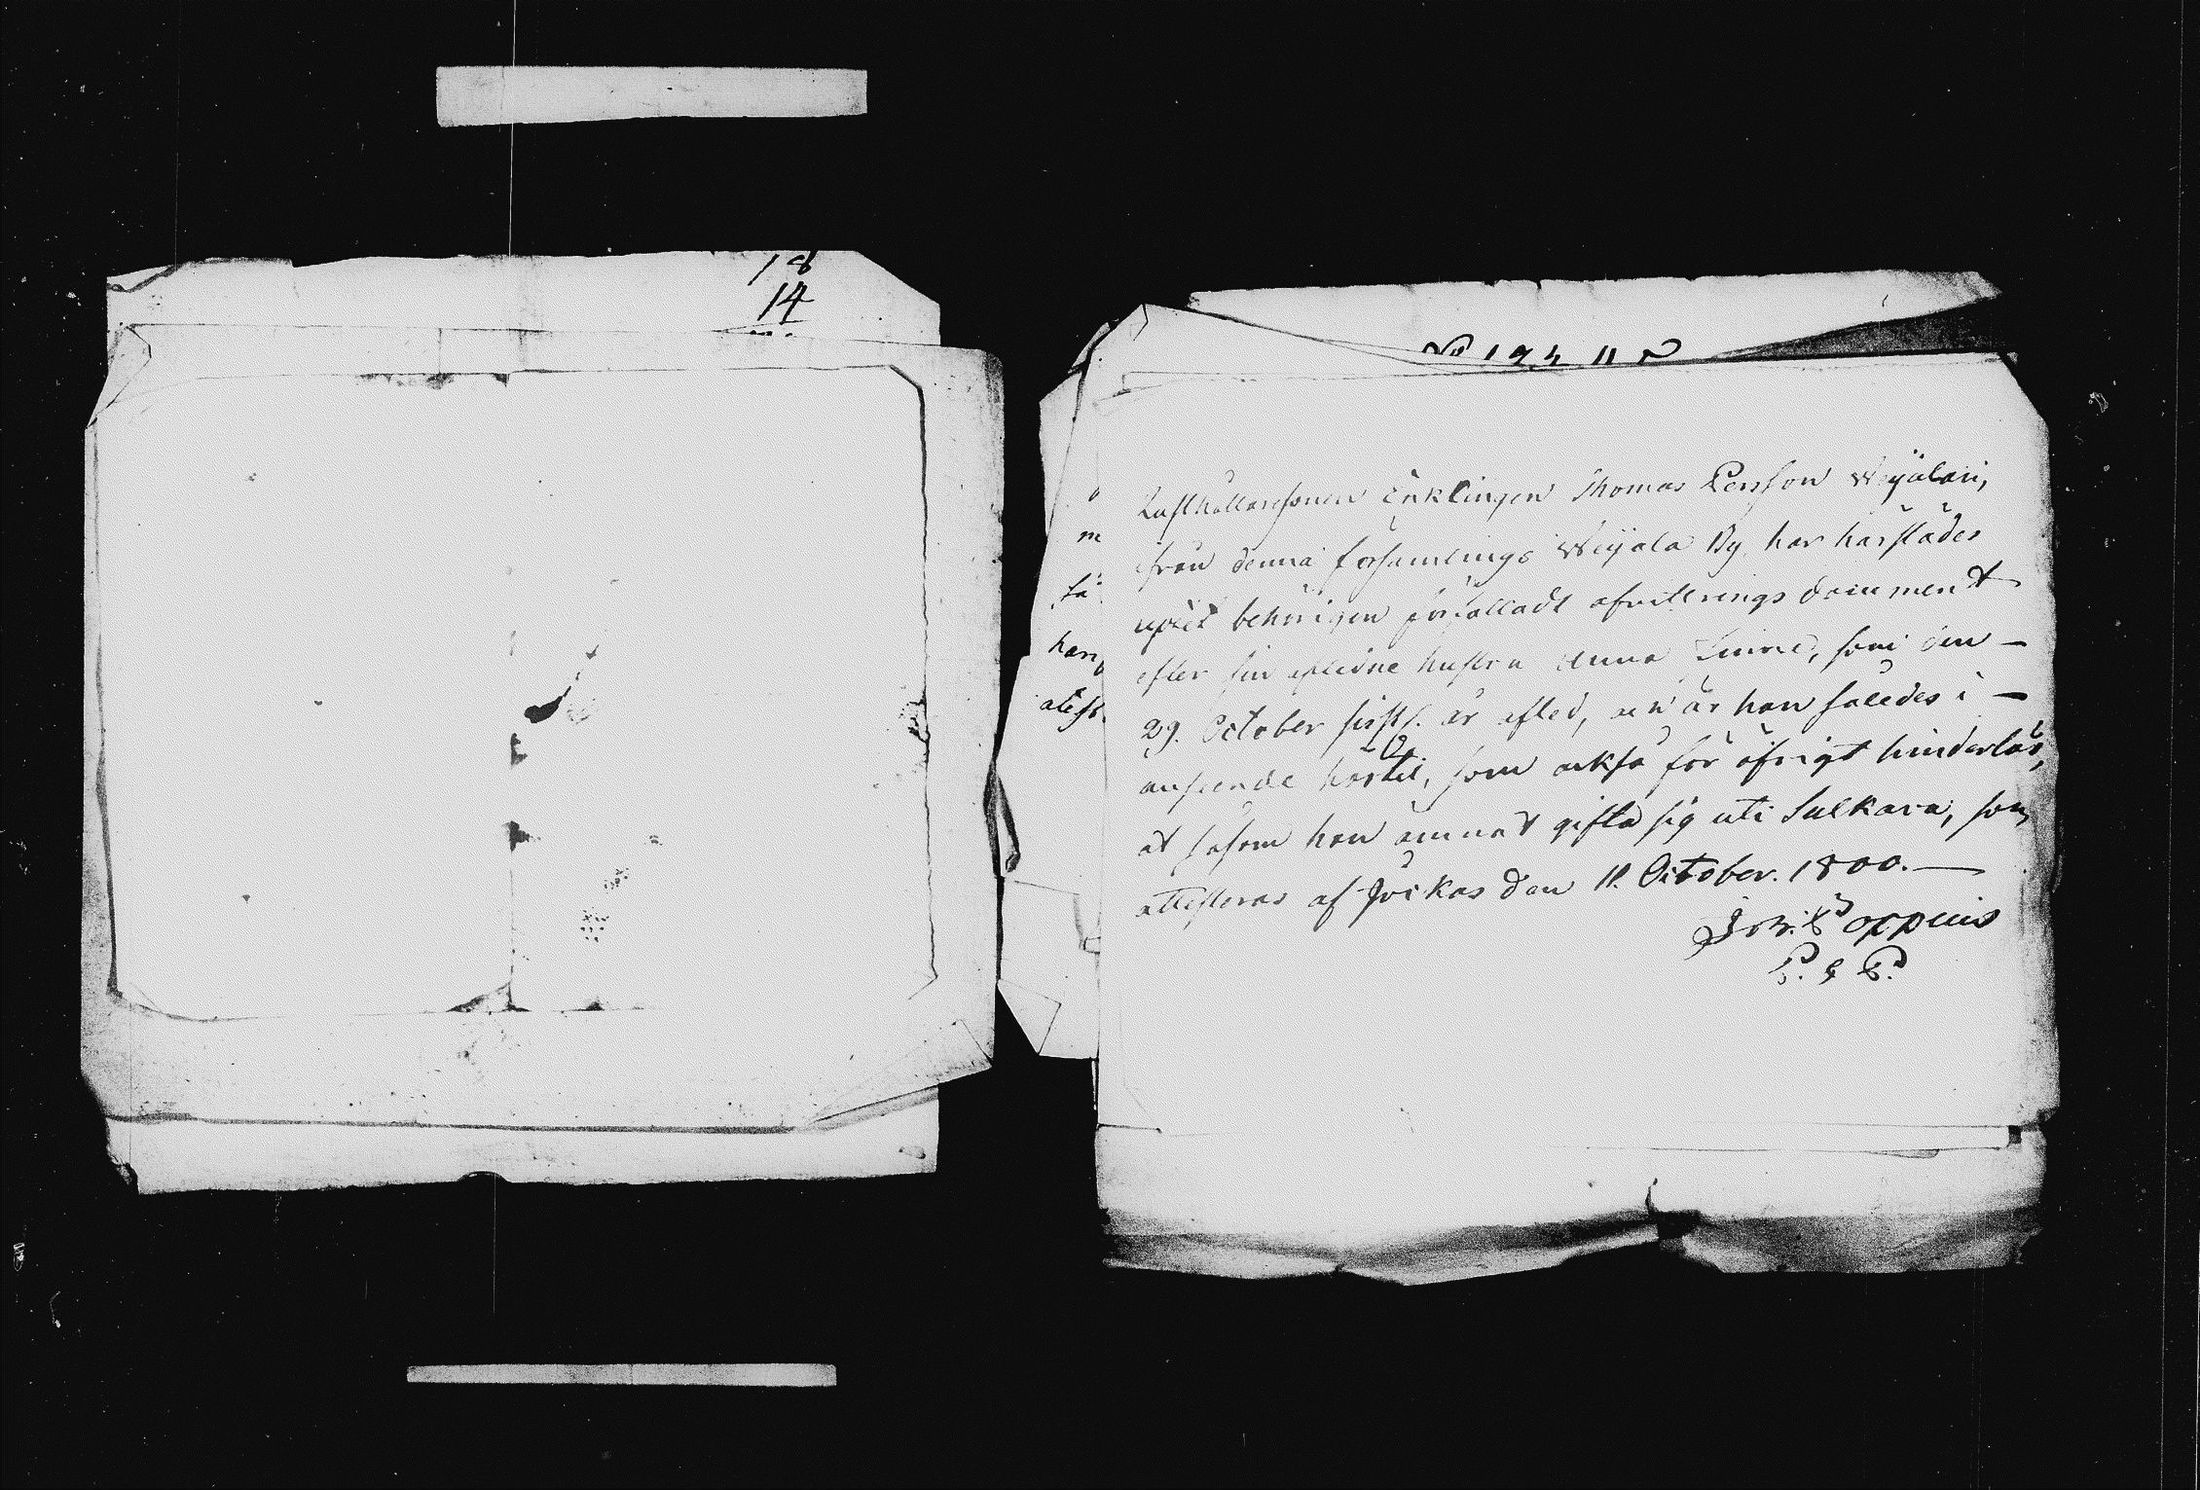 18
14
m
så
han
atest
Rusthållaresonen Enklingen Thomas Persson Weijalain,
från denna församlings Weijala By, har härstädes
upvist behörigen författadt afvittrings document
efter sin aflidne hustru Anna, som den —
29. October sistl. år afled, och är han således i —
anseende härtil, som också för öfrigt hinderlös,
at såsom han ämnat gifta sig uti Sulkava, som
attesteras af Jockas den 11. October. 1800. —
Joh. Poppius
P. & P.